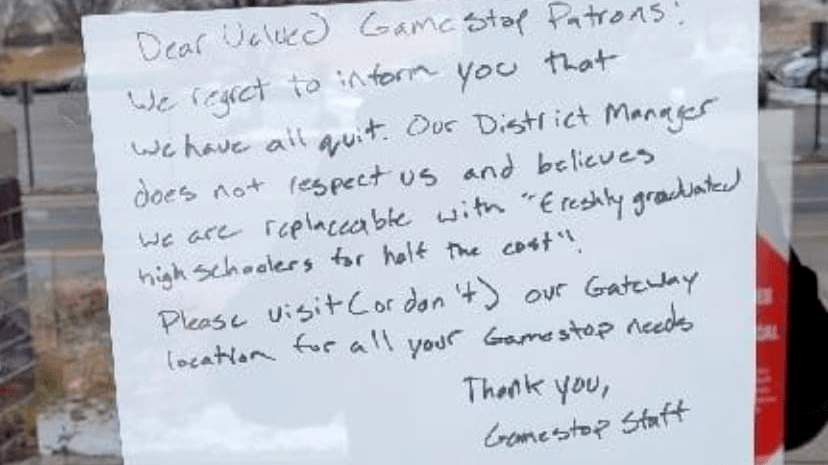 Dear Valued GameStop Patrons:
We regret to inform you that
we have all quit. Our District Manager
does not respect us and believes
we are replaceable with "freshly graduated
high schoolers for half the cost".
Please visit (or don't) our Gateway
location for all your Gamestop needs
Thank you,
Gamestop Staff